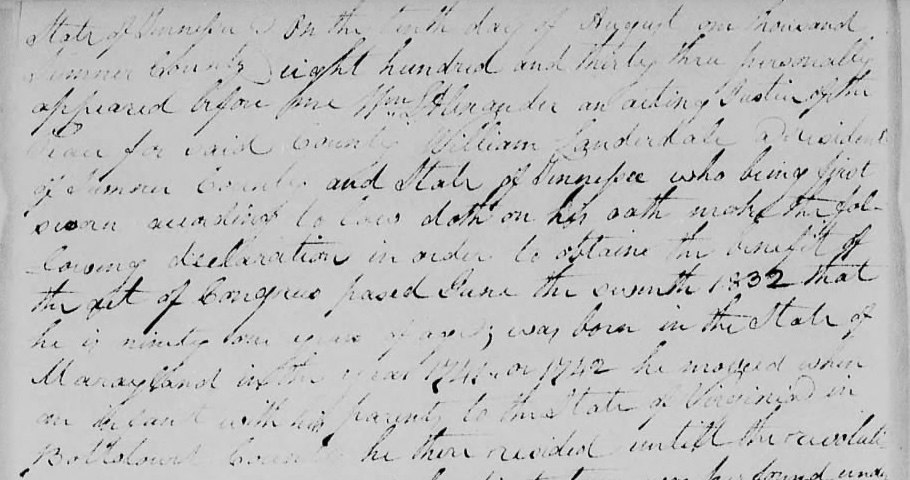 State of Tennessee } On the tenth day of August one thousand
Sumner County } eight hundred and thirty three personally
appeared before me Wm. Alexander an acting Justice of the
Peace for said County William Lauderdale a resident
of Sumner County and State of Tennessee who being first
sworn according to law doth on his oath make the fol-
-lowing decelaration in order to obtaine the benefit of
the act of Congress passed June the seventh 1832 that
he is ninety one years of age; was born in the State of
Marayland in the year 1741 or 1742 he moved when
an infant with his parents to the State of Virginia in
Bottotourt County he there resided untill the revoluti
found unde